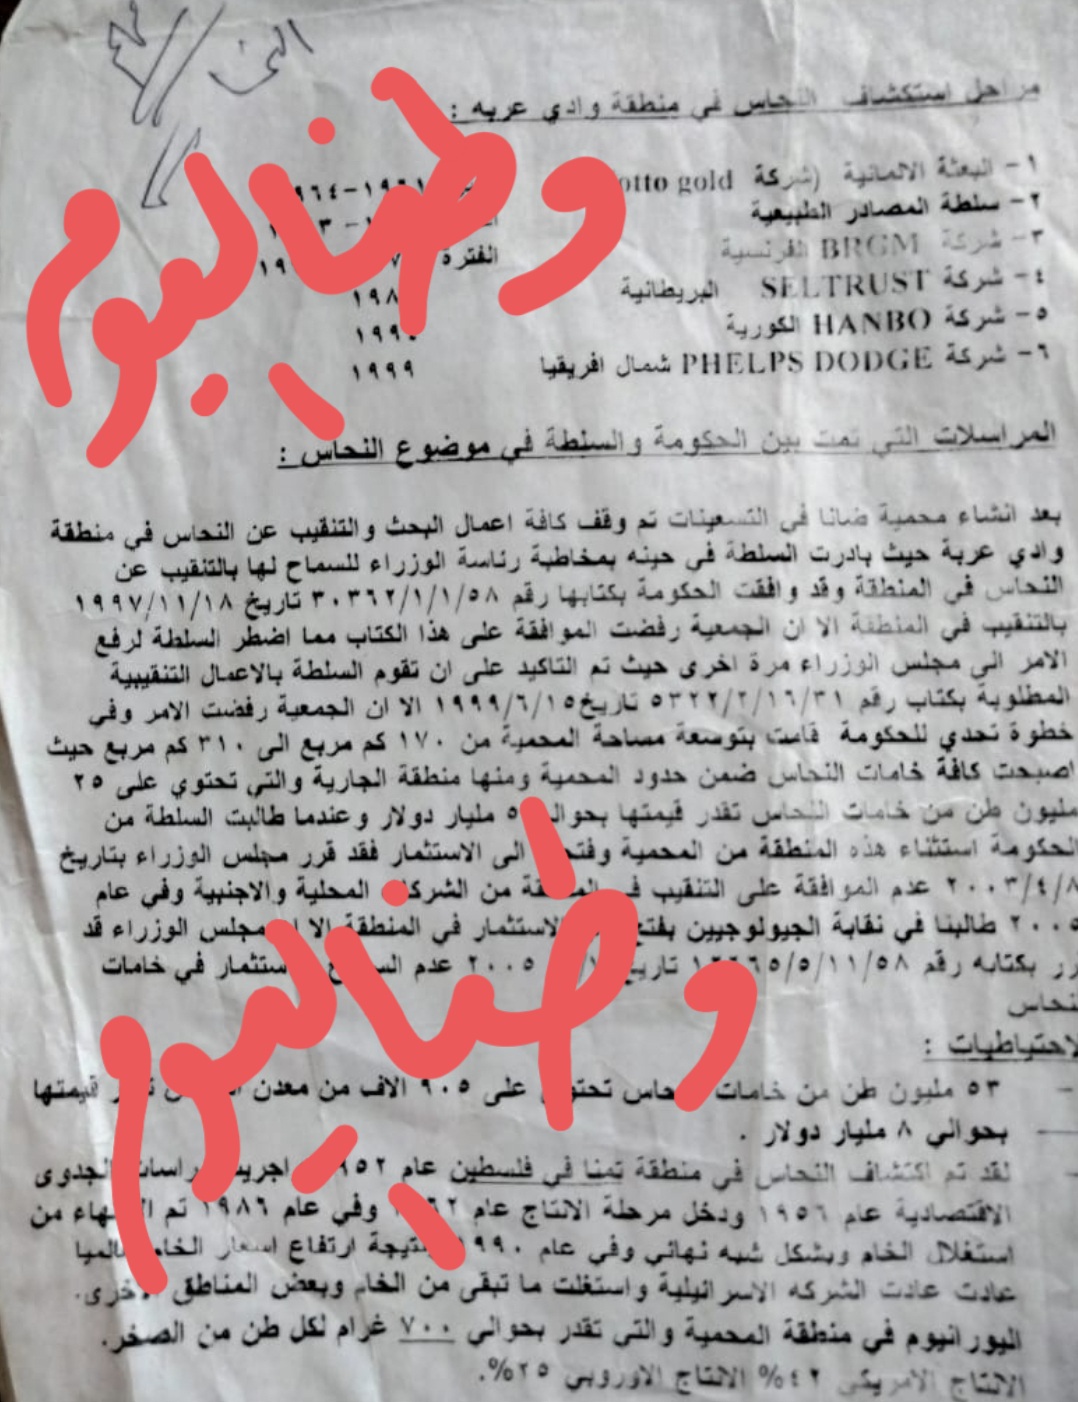 مراحل استكشاف النحاس في منطقة وادي عربه :
١- البعثة الالمانية (شركة otto gold ١٩٦١-١٩٦٤
٢- سلطة المصادر الطبيعية
٣- شركة BRGM الفرنسية الفترة
٤- شركة SELTRUST البريطانية
٥- شركة HANBO الكورية
٦- شركة PHELPS DODGE شمال افريقيا ١٩٩٩
وطنا اليوم
المراسلات التي تمت بين الحكومة والسلطة في موضوع النحاس :
بعد انشاء محمية ضانا في التسعينات تم وقف كافة اعمال البحث والتنقيب عن النحاس في منطقة
وادي عربة حيث بادرت السلطة في حينه بمخاطبة رئاسة الوزراء للسماح لها بالتنقيب عن
النحاس في المنطقة وقد وافقت الحكومة بكتابها رقم ٣٠٣٦٢/١/١/٥٨ تاريخ ١٩٩٧/١١/١٨
بالتنقيب في المنطقة الا ان الجمعية رفضت الموافقة على هذا الكتاب مما اضطر السلطة لرفع
الامر الى مجلس الوزراء مرة اخرى حيث تم التاكيد على ان تقوم السلطة بالاعمال التنقيبية
المطلوبة بكتاب رقم ٥٣٢٢/٢/١٦/٣١ تاريخ١٩٩٩/٦/١٥ الا ان الجمعية رفضت الامر وفي
خطوة تحدي للحكومة قامت بتوسعة مساحة المحمية من ١٧٠ كم مربع الى ٣١٠ كم مربع حيث
اصبحت كافة خامات النحاس ضمن حدود المحمية ومنها منطقة الجارية والتي تحتوي على ٢٥
مليون طن من خامات النحاس تقدر قيمتها مليار دولار وعندما طالبت السلطة من
الحكومة استثناء هذه المنطقة من المحمية الى الاستثمار فقد قرر مجلس الوزراء بتاريخ
٢٠٠٣/٤/٨ عدم الموافقة على التنقيب من الشركات المحلية والاجنبية وفي عام
٢٠٠٥ طالبنا في نقابة الجيولوجيين الاستثمار في المنطقة مجلس الوزراء قد
بكتابه رقم تاريخ عدم في خامات
النحاس
وطنا اليوم
الاحتياطيات :
- ٥٣ مليون طن من خامات على ٩٠٥ الاف من معدن قيمتها
بحوالي ٨ مليار دولار .
- لقد تم اكتشاف النحاس في منطقة تمنا في فلسطين عام الجدوى
الاقتصادية عام ١٩٥٦ ودخل مرحلة الانتاج عام وفي عام ١٩٨٦ تم من
استغلال الخام وبشكل شبه نهائي وفي عام ارتفاع اسعار الخام
عادت عادت الشركه الاسرائيلية واستغلت ما تبقى من الخام وبعض المناطق الاخرى.
اليورانيوم في منطقة المحمية والتي تقدر بحوالي ٧٠٠ غرام لكل طن من الصخر.
الانتاج الامريكي ٤٢% الانتاج الاوروبي ٢٥%.